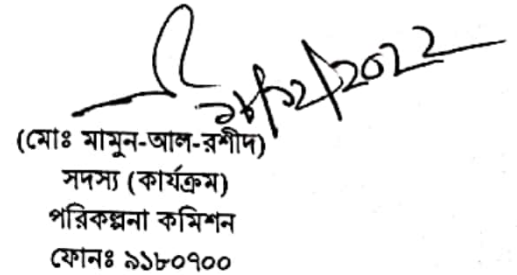 ২৮/১২/2022
(মোঃ মামুন-আল-রশীদ)
সদস্য (কার্যক্রম)
পরিকল্পনা কমিশন
ফোনঃ ৯১৮০৭০০